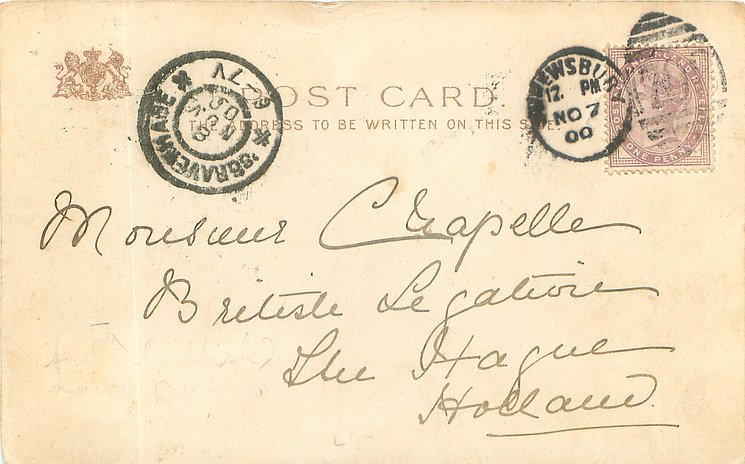 POST CARD.
THE ADDRESS TO BE WRITTEN ON THIS SIDE.
SHREWSBURY
12. PM
NO 7
00
'SGRAVENHAGE
8 NOV
00
6-7V
ONE PENNY
Monsieur Chapelle
British Legation
The Hague
Holland